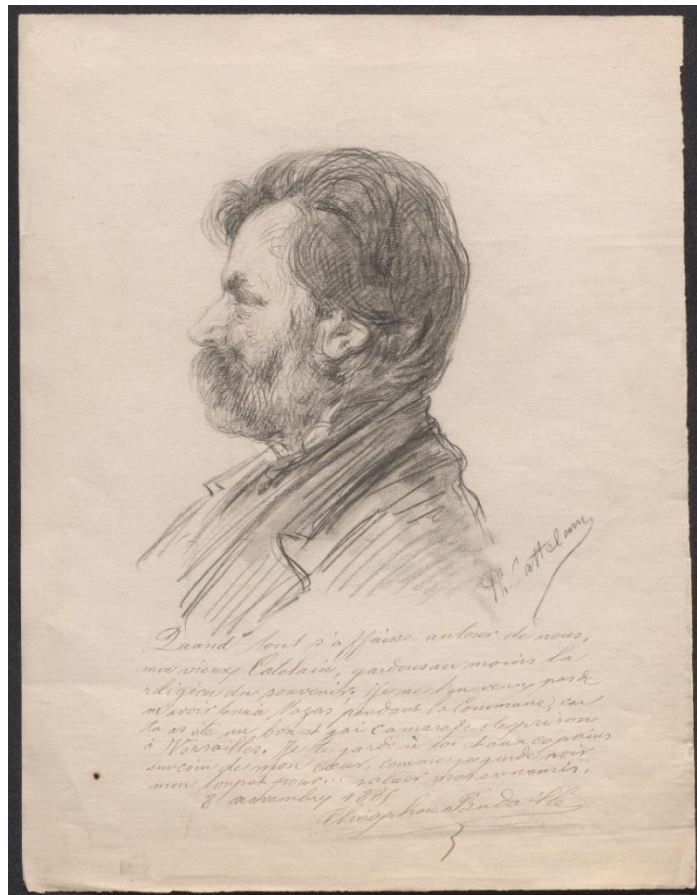 Ph Cattelain
Quand tout s'affaisse autour de nous,
mon vieux Catelain, gardons au moins la
religion du souvenir. Je ne t'en veux pas de
m'avoir tenu à Mazas pendant la Commune, car
tu as été un bon et gai camarade de prison
à Versailles. Je te garde à toi et aux copains
un coin de mon cœur, comme je garde noir
mon toupet pour... mes ennemis.
8 novembre